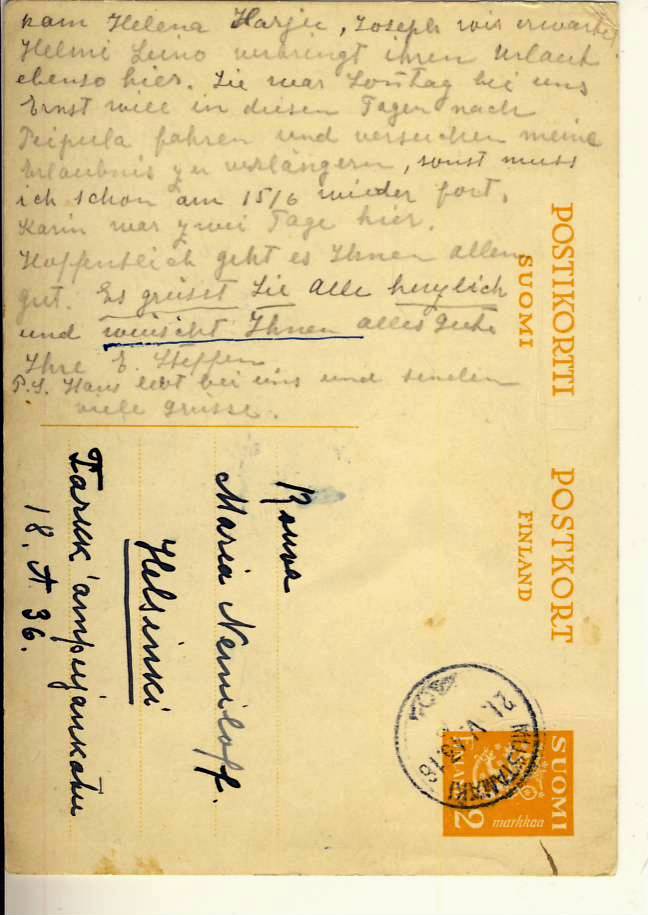 kam Helena Harju, Joseph wir erwarten
Helmi Leino verbringt ihren Urlaub
ebenso hier. Sie war Sontag bei uns
Ernst will in diesen Tagen nach
Peipula fahren und versuchen meine
Erlaubnis zu verlängern, sonst muss
ich schon am 15/6 wieder fort.
Karin war zwei Tage hier.
Hoffentlich geht es Ihnen allen
gut. Es grüsst Sie Alle herzlich
und wünscht Ihnen alles Gute
Ihre E. Steffen
P.S. Hans lebt bei uns und senden
viele Grüsse.
POSTIKORTTI POSTKORT
SUOMI FINLAND
Rouva
Maria Nemiloff.
Helsinki
18. A 36.
MUSTAMÄKI
21. V. 43.18
SUOMI
FINLAND
2 markkaa